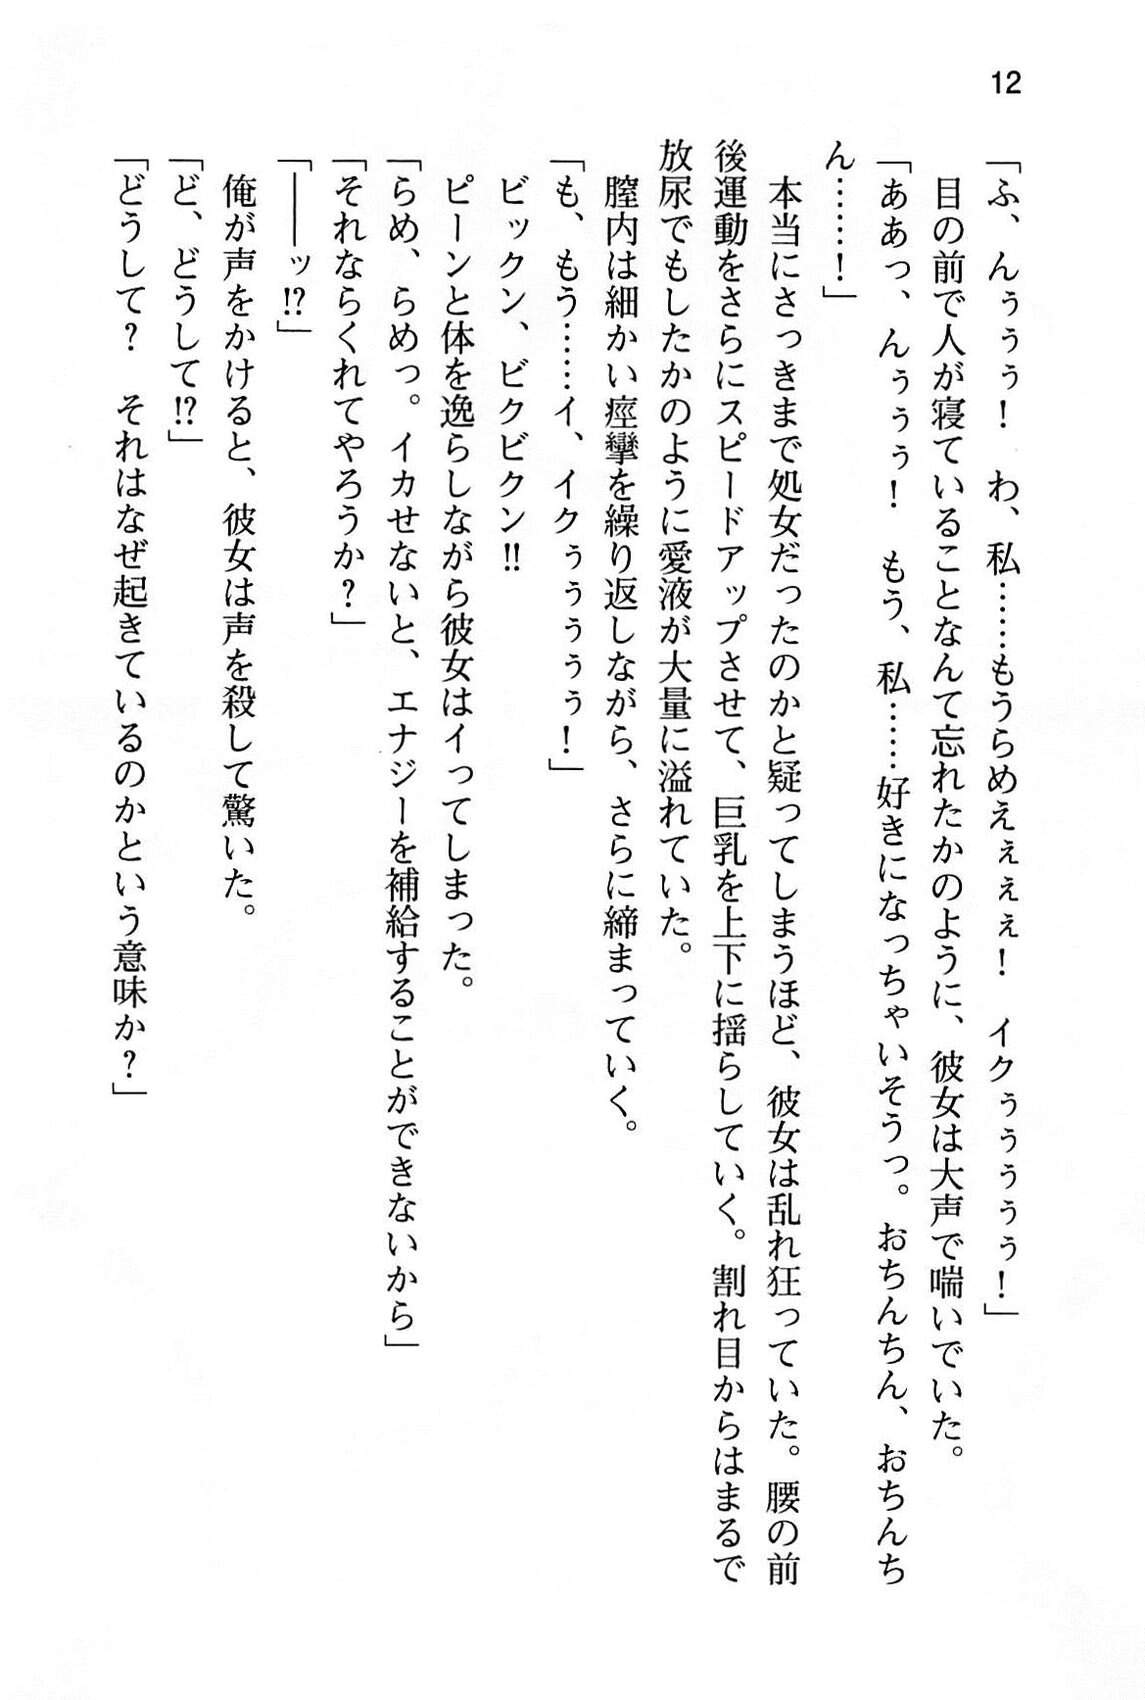 12
「ふ、んぅぅぅ！　わ、私……もうらめえぇぇぇ！　イクぅぅぅぅぅ！」
　目の前で人が寝ていることなんて忘れたかのように、彼女は大声で喘いでいた。
「ああっ、んぅぅぅ！　もう、私……好きになっちゃいそうっ。おちんちん、おちんち
ん……！」
　本当にさっきまで処女だったのかと疑ってしまうほど、彼女は乱れ狂っていた。腰の前
後運動をさらにスピードアップさせて、巨乳を上下に揺らしていく。割れ目からはまるで
放尿でもしたかのように愛液が大量に溢れていた。
　膣内は細かい痙攣を繰り返しながら、さらに締まっていく。
「も、もう……イ、イクぅぅぅぅぅ！」
　ビックン、ビクビクン!!
　ピーンと体を逸らしながら彼女はイってしまった。
「らめ、らめっ。イカせないと、エナジーを補給することができないから」
「それならくれてやろうか？」
「――ッ!?」
　俺が声をかけると、彼女は声を殺して驚いた。
「ど、どうして!?」
「どうして？　それはなぜ起きているのかという意味か？」